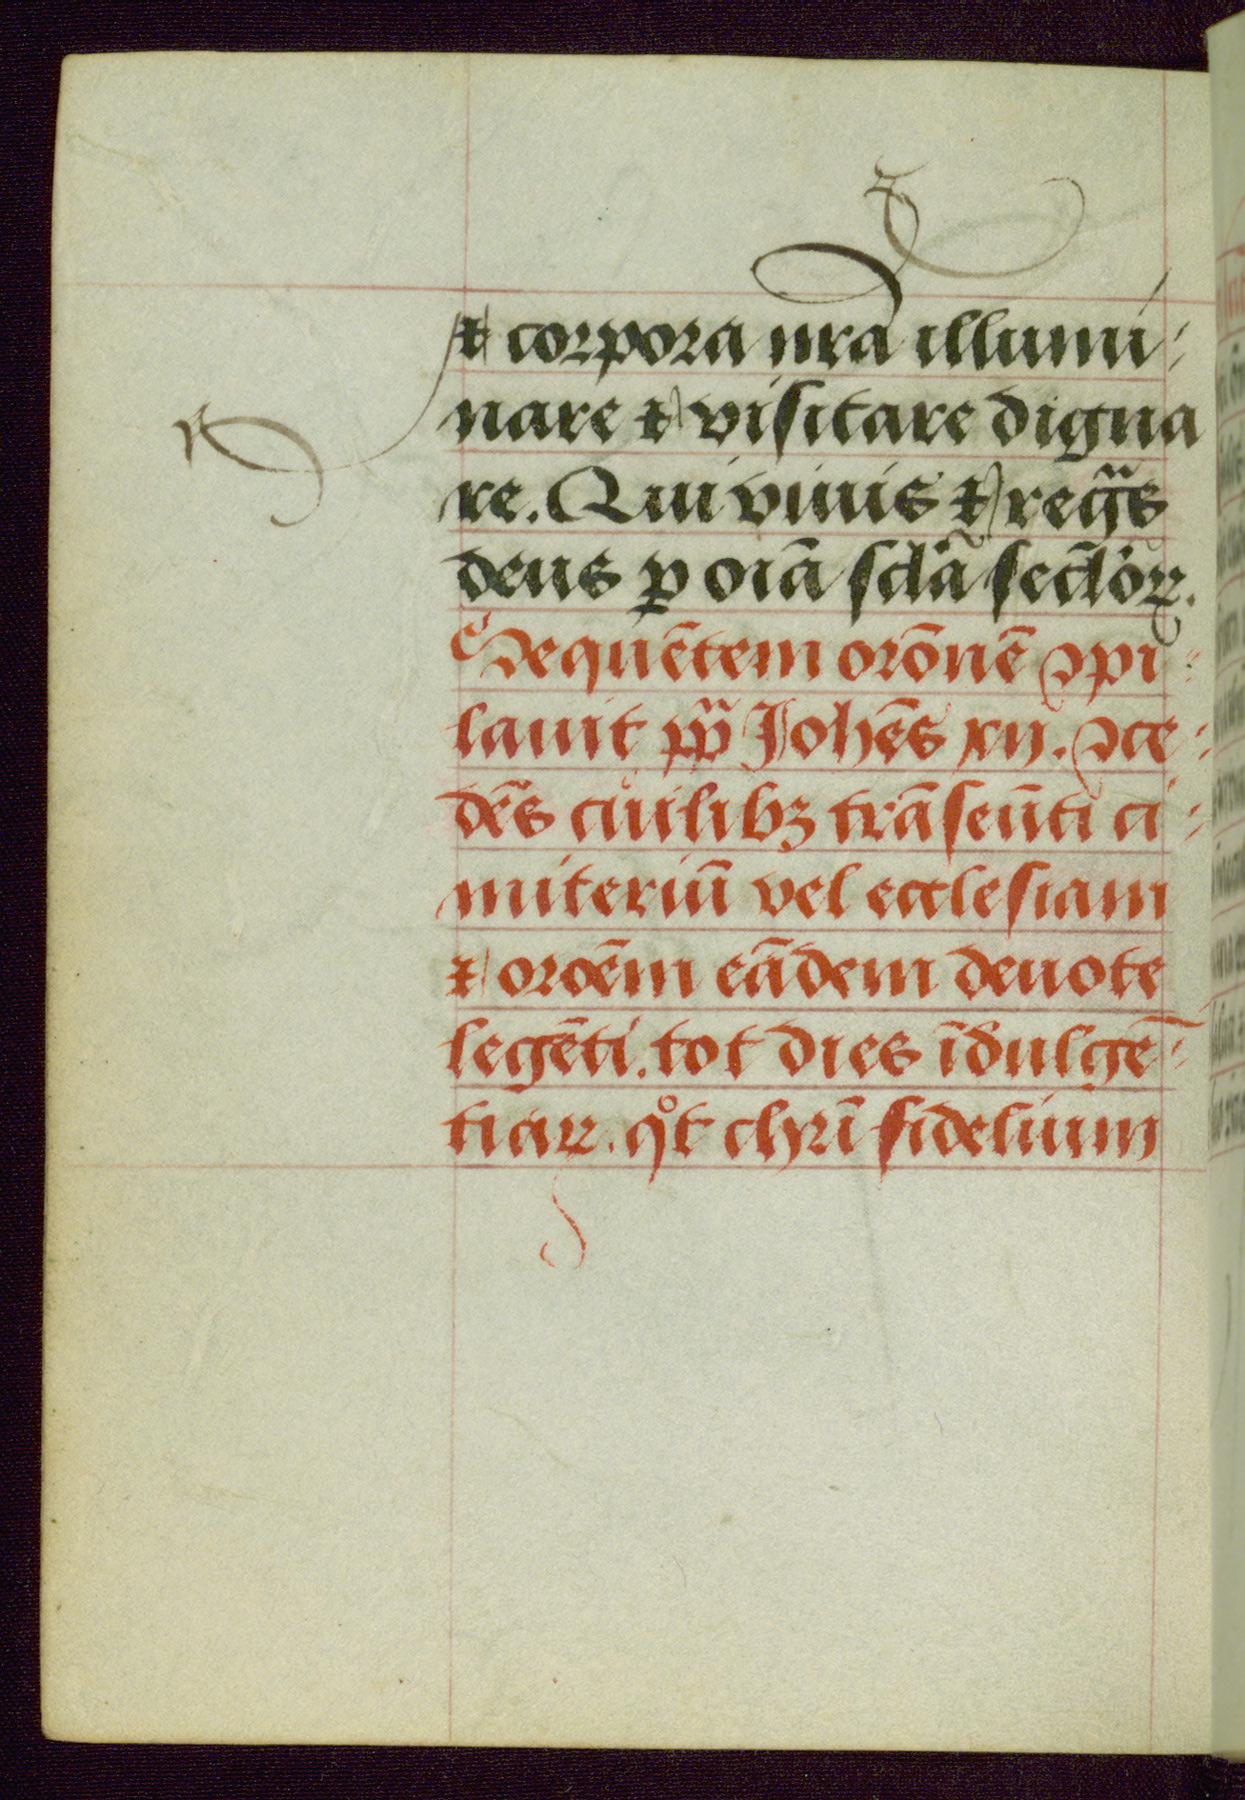 ⁊ corpora nr̄a illumi⸗
nare ⁊ visitare digna
re. Qui viuis ⁊ regͣs
deus ꝑ oīa scl̄a secl̄oꝝ.
Sequētem orōnē ꝯpi⸗
lauit pp̄ Johēs xij. ꝯce⸗
dēs cuilibꝫ trāseūti ci⸗
miteriū vel ecclesiam
⁊ oroēm eādem deuote
legēti. tot dies īdulgē⸗
tiaꝝ. qͦt chrī fidelium